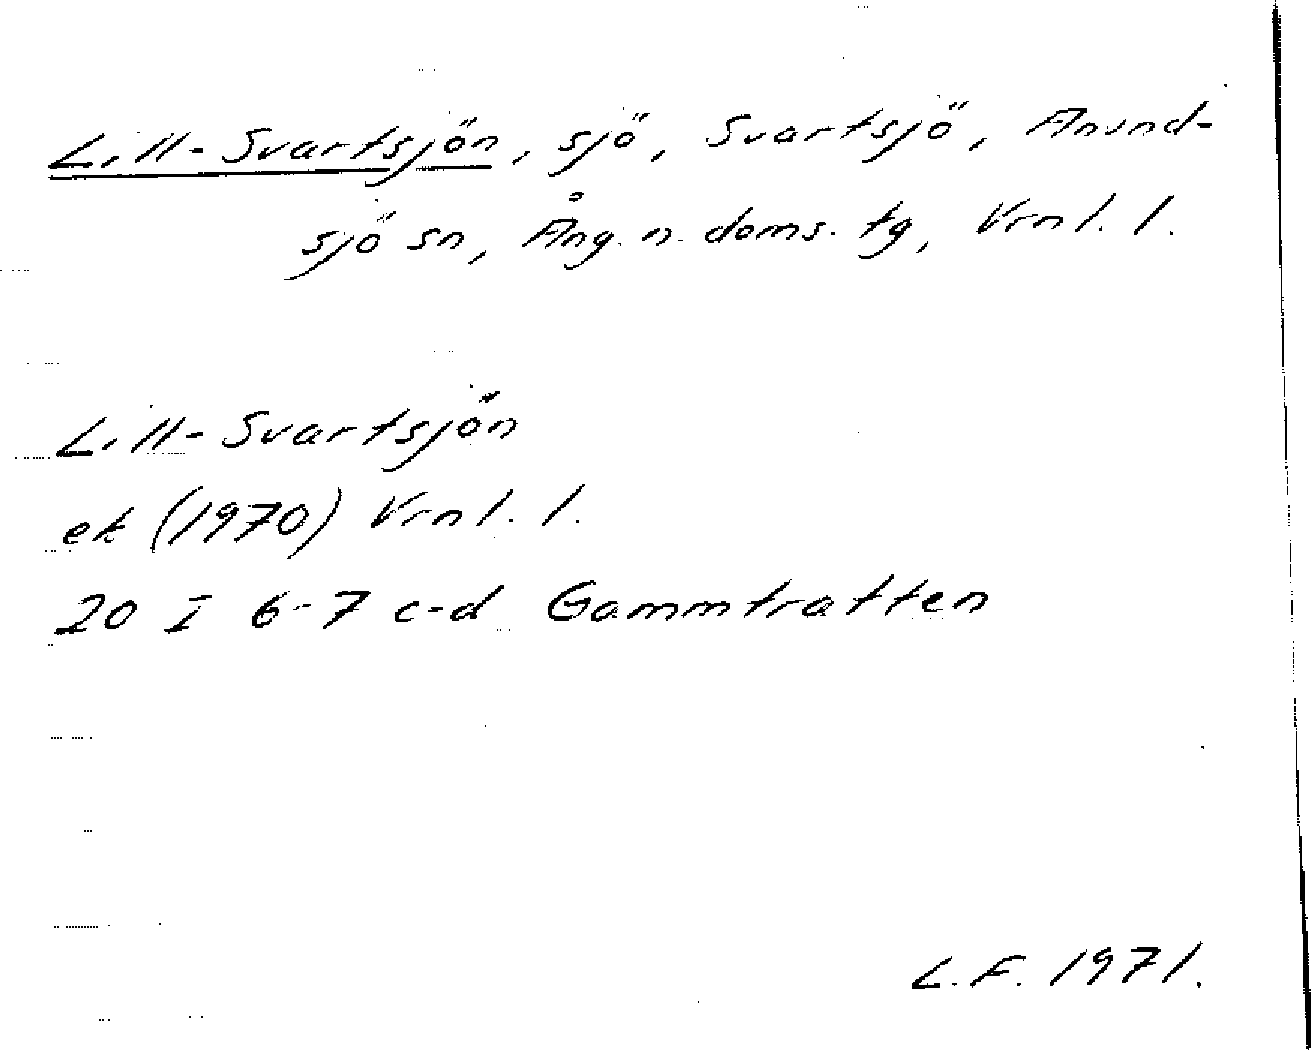 Lill-Svartsjön, sjö, Svartsjö, Anund-
sjö sn, Ång. n. doms. tg, Vrnl. l.
Lill-Svartsjön
ek (1970) Vrnl. l.
20 I 6-7 c-d Gammtratten
L.F. 1971.